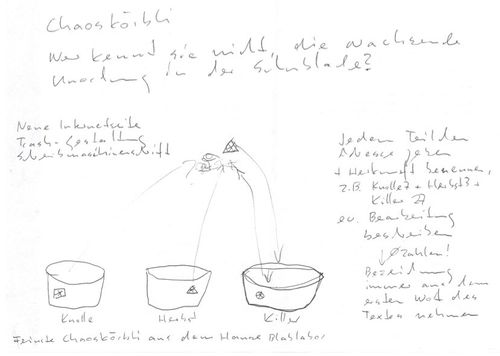 Chaoskörbli
Wer kennt sie nicht, die wachsende
Unordnung in der Schublade?
Neue Internetseite
Trash-Gestaltung
Schreibmaschinenschrift
Jedem Teil den
Masse geben
+ Herkunft benennen,
z.B. Knolle 7 + Herbst 3 +
Killer 27
ev. Bearbeitung
beschreiben
Zahlen!
Bezeichnung
immer aus dem
ersten Wort des
Textes nehmen
Knolle
Herbst
Killer
Feinste Chaoskörbli aus dem Hause Blablabor